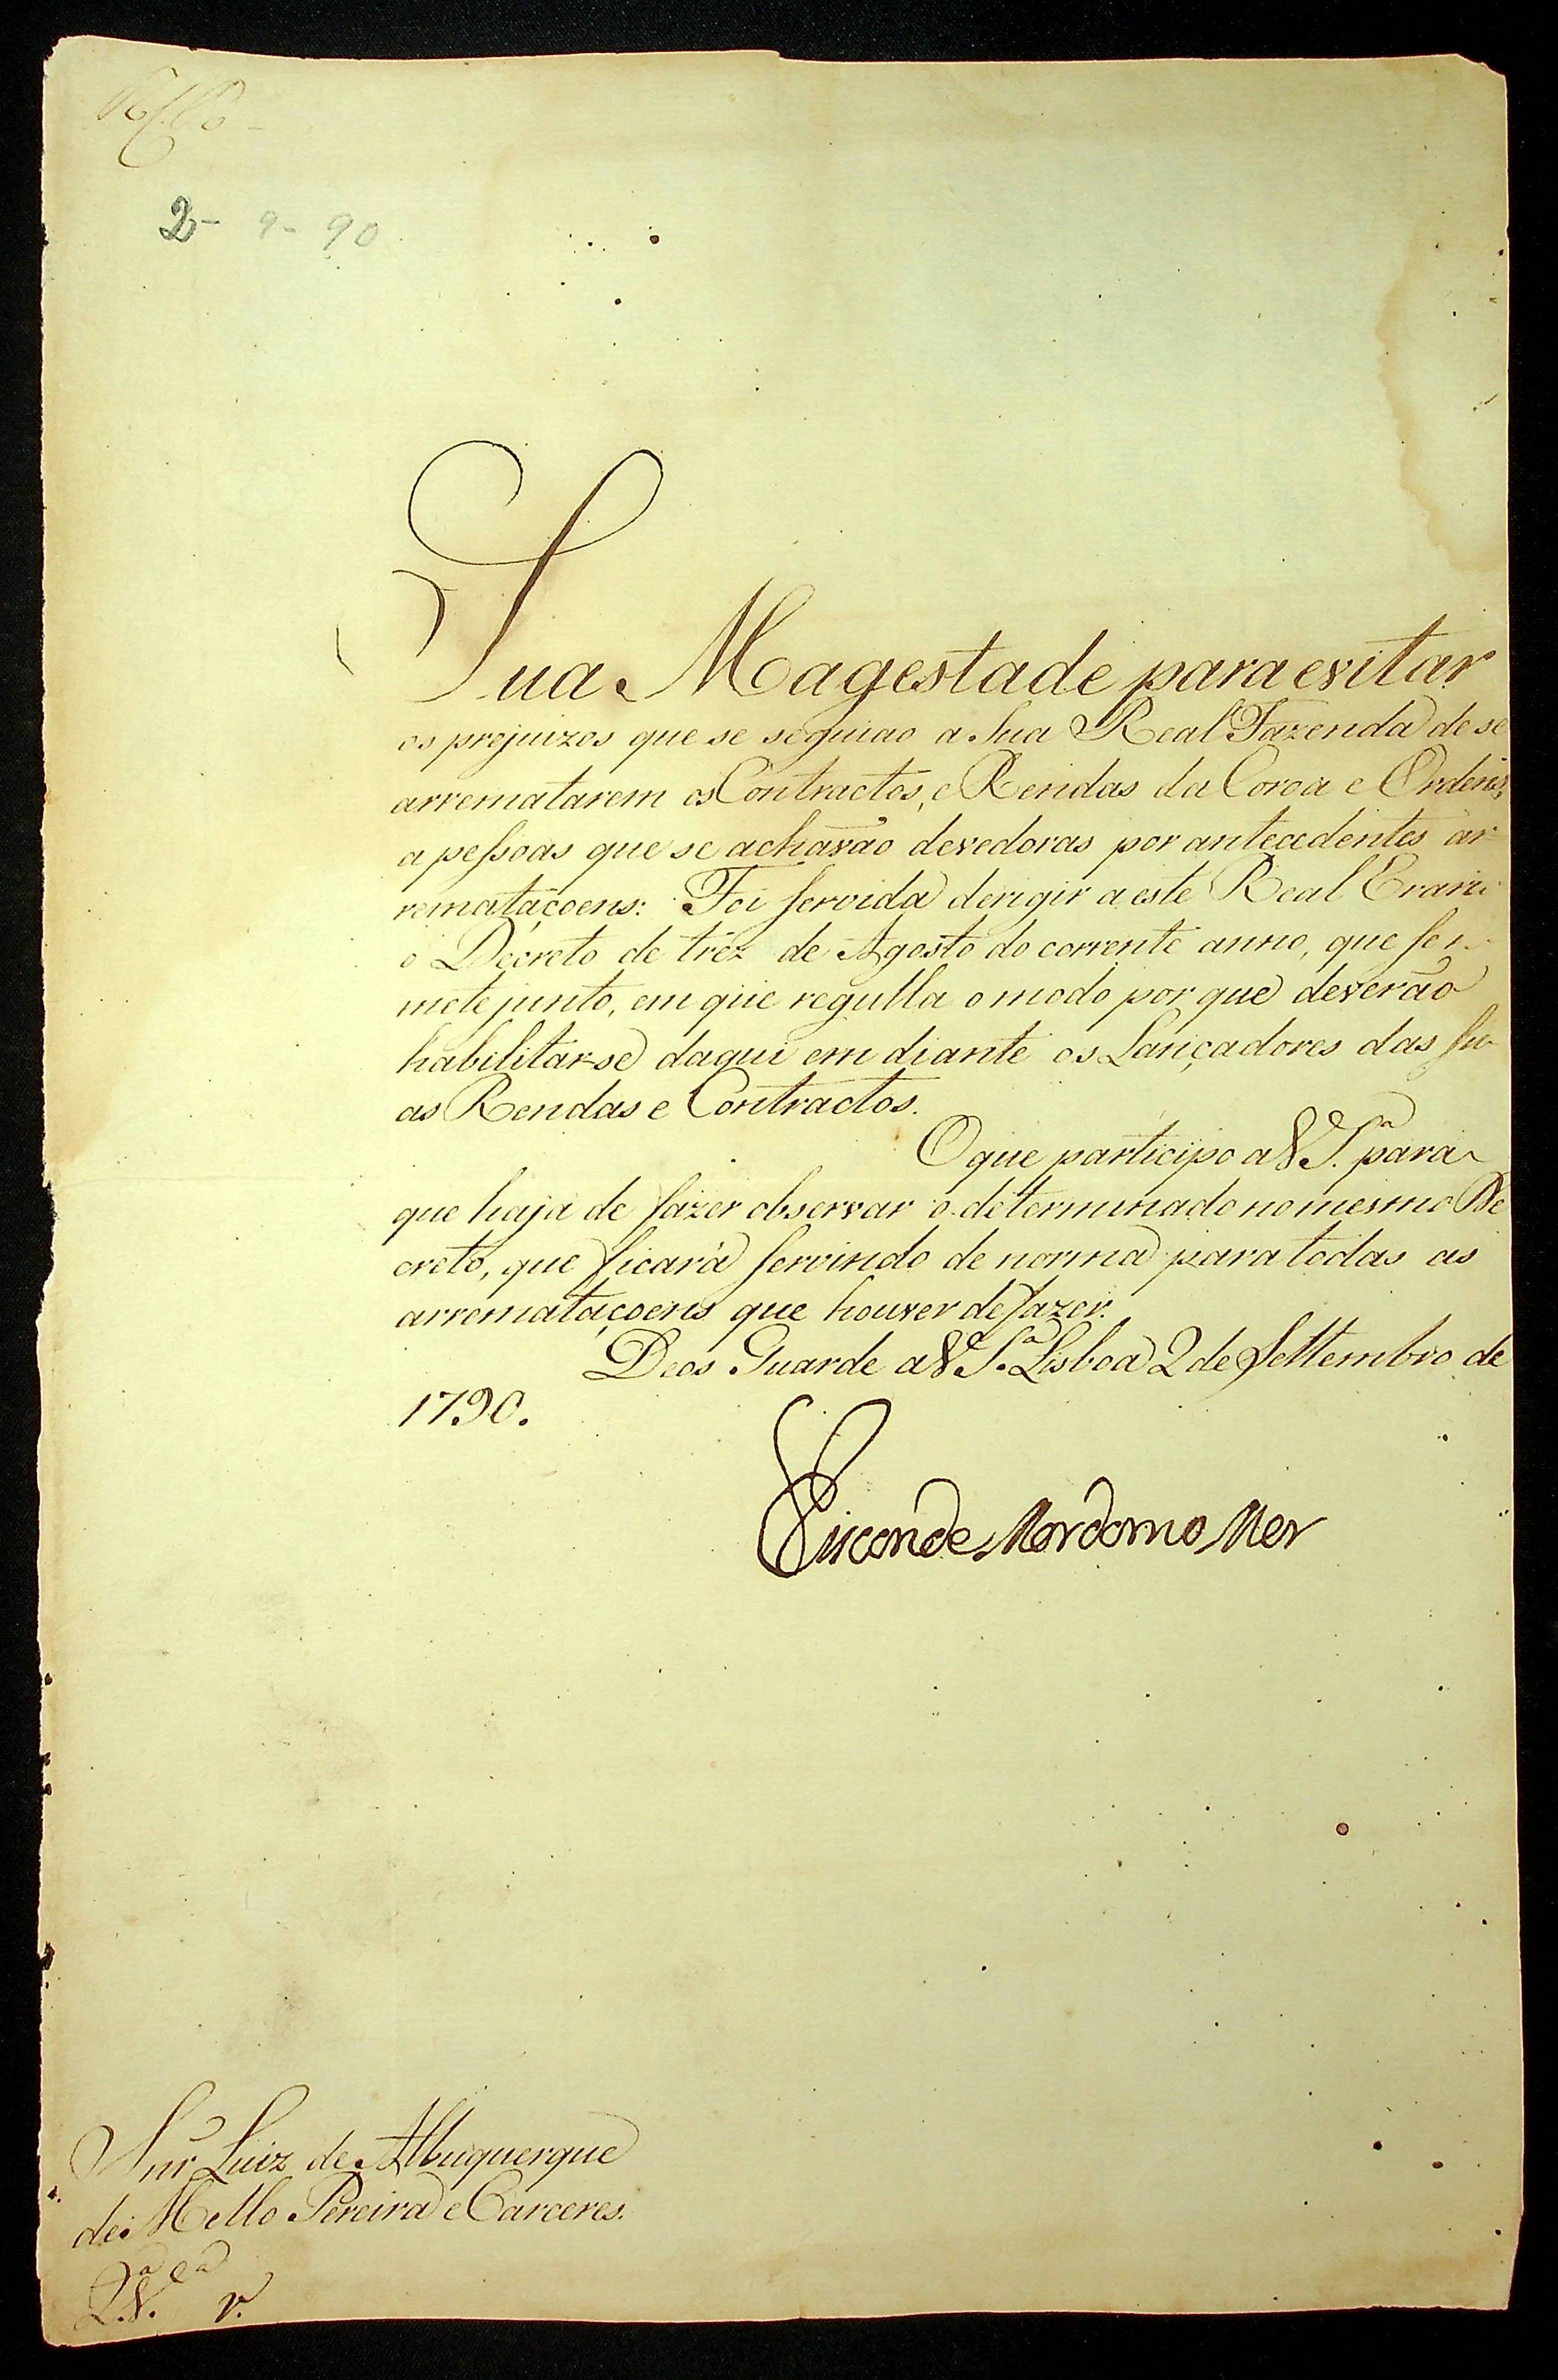 2- 9- 90
Sua Magestade para evitar
os prejuizos que se seguiao a Sua Real Fazenda de se
arrematarem os Contractos, e Rendas da Coroa e Ordens,
a pessoas que se achavão devedoras por antecedentes ar-
remataçoens: Foi servida derigir a este Real Erario
o Decreto de trez de Agosto do corrente anno, que se
mete junto, em que regulla o modo por que deverão
habilitar-se daqui em diante os Lançadores das Su-
as Rendas e Contractos.
O que participo a V. S.ª para
que haja de fazer observar o determinado no mesmo De
creto, que ficará servindo de norma para todas as
arremataçoens que houver de fazer.
Deos Guarde a V. S.ª Lisboa 2 de Settembro de
1790.
Visconde Mordomo Mor
Snr Luiz de Albuquerque
de Mello Pereira e Carceres.